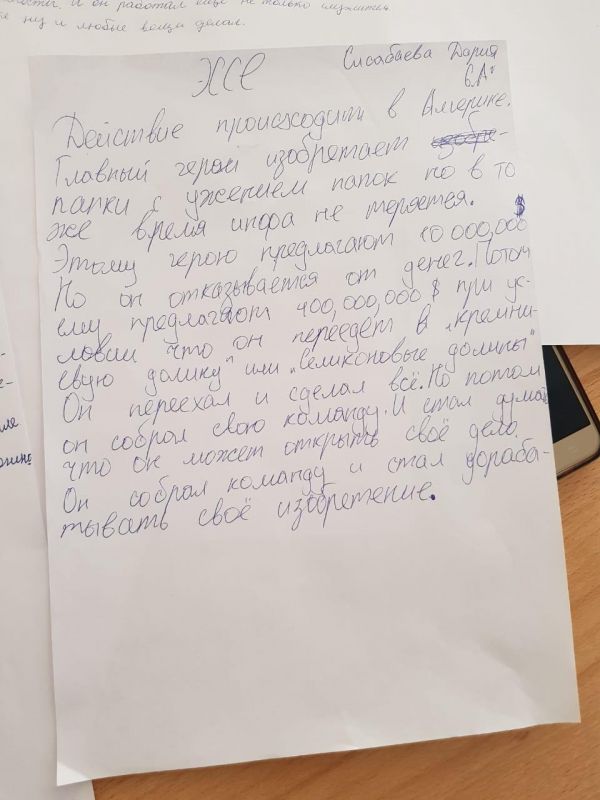 и он работал еще не только
ну и любые вещи делал.
ЭССЕ
Дария
6"А"
Действие происходит в Америке.
Главный герой изобретает
папки с ужением папок но в то
же время инфа не теряется.
Этому герою предлагают 10 000,000$
Но он отказывается от денег. Потом
ему предлагают 400,000,000 $ при ус-
ловии что он переедет в „кремни-
евую долину" или „Селиконовые долины"
Он переехал и сделал всё. Но потом
он собрал свою команду. И стал думать
что он может открыть своё дело.
Он собрал команду и стал дораба-
тывать своё изобретение.